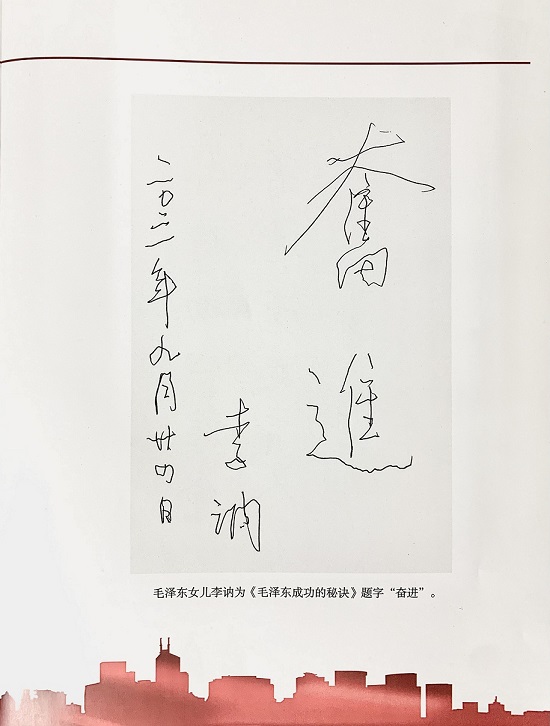 奮進
李讷
二〇二一年九月廿四日
毛泽东女儿李讷为《毛泽东成功的秘诀》题字“奋进”。